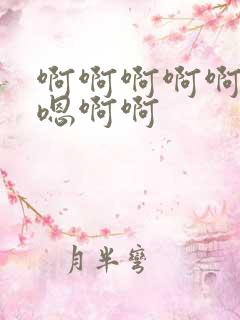 啊啊啊啊啊
嗯啊啊
月半彎